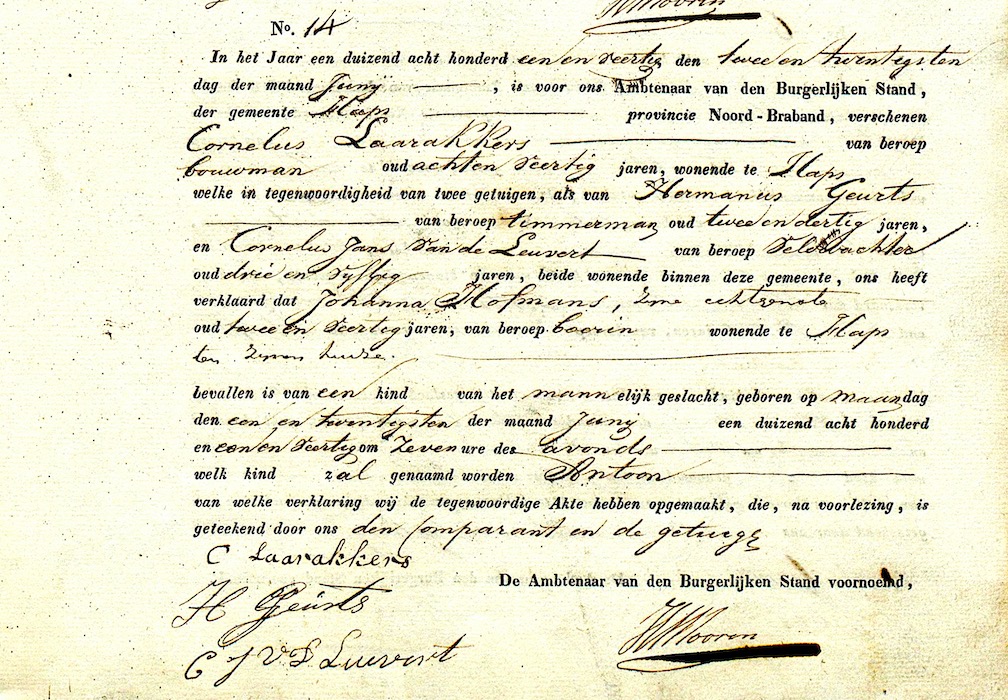 No. 14
In het Jaar een duizend acht honderd een en veertig den twee en twentigsten
dag der maand Junij , is voor ons Ambtenaar van den Burgerlijken Stand,
der gemeente Haps provincie Noord-Braband, verschenen
Cornelus Laarakkers van beroep
bouwman oud acht en veertig jaren, wonende te Haps
welke in tegenwoordigheid van twee getuigen, als van Hermanus Geurts
van beroep timmerman oud twee en dertig jaren,
en Cornelus Jans van de Leuvert van beroep Veldwachter
oud drie en vyftig jaren, beide wonende binnen deze gemeente, ons heeft
verklaard dat Johanna Hofmans, zyne echtgenote
oud twee en veertig jaren, van beroep boerin wonende te Haps
ten zynen huize.
bevallen is van een kind van het mannelijk geslacht, geboren op maandag
den een en twentigsten der maand Junij een duizend acht honderd
en een en veertig om zeven ure des avonds
welk kind zal genaamd worden Antoon
van welke verklaring wij de tegenwoordige Akte hebben opgemaakt, die, na voorlezing, is
geteekend door ons den comparant en de getuige
C Laarakkers
De Ambtenaar van den Burgerlijken Stand voornoemd,
H Geurts
C J V D Leuvert